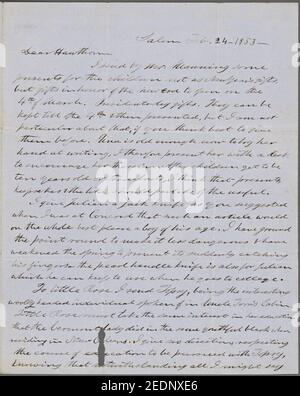 Salem Feb. 24 - 1853 -
Dear Hawthorne
I send by Mr. Manning some
presents for the children not as New Year's gifts,
but gifts in honor of the new era to open on the
4th of March. Presidential gifts. They can be
kept till the 4th & then presented, but I am not
particular about that, if you think best to give
them before. Una is old enough now to try her
hand at writing, & therefore I present her with a desk
to encourage her therein. After children get to be
ten years old it is as well, I think, that presents
to them should partake of the useful.
I give Julian a jack knife, as you suggested
when I was at Concord that such an article would
on the whole best please a boy of his age. I have ground
the point round to make it less dangerous & have
weakened the spring to prevent its suddenly catching
his fingers. The pearl handled knife is also for Julian
which he can keep to use when he goes to college.
To little Rose I send Topsy, being the
wooly headed individual spoken of in Uncle Tom's Cabin
Little Rose must take the same interest in her education
that the Vermont lady did in the same youthful black when
residing in New Orleans. I give no directions respecting
the course of education to be pursued with Topsy,
knowing that notwithstanding all I might say
alamy
Image ID: 2EDNXE6
www.alamy.com